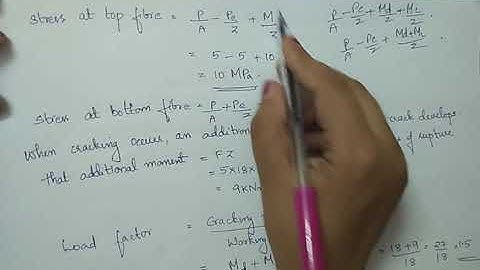 stress at top fibre = P/A - Pe/Z + M/Z
P/A - Pe/Z + Md + ML/Z
P/A - Pe/Z + Md+ML/Z
= 5 - 5 + 10
= 10 MPa.
stress at bottom fibre = P/A + Pe/Z
When cracking occurs, an addition crack develops
that additional moment = FZ of rupture
= 5×18×
= 9kN
Load factor = Cracking
Working
= 18+9/18 = 27/18 = 1.5
= Md + M